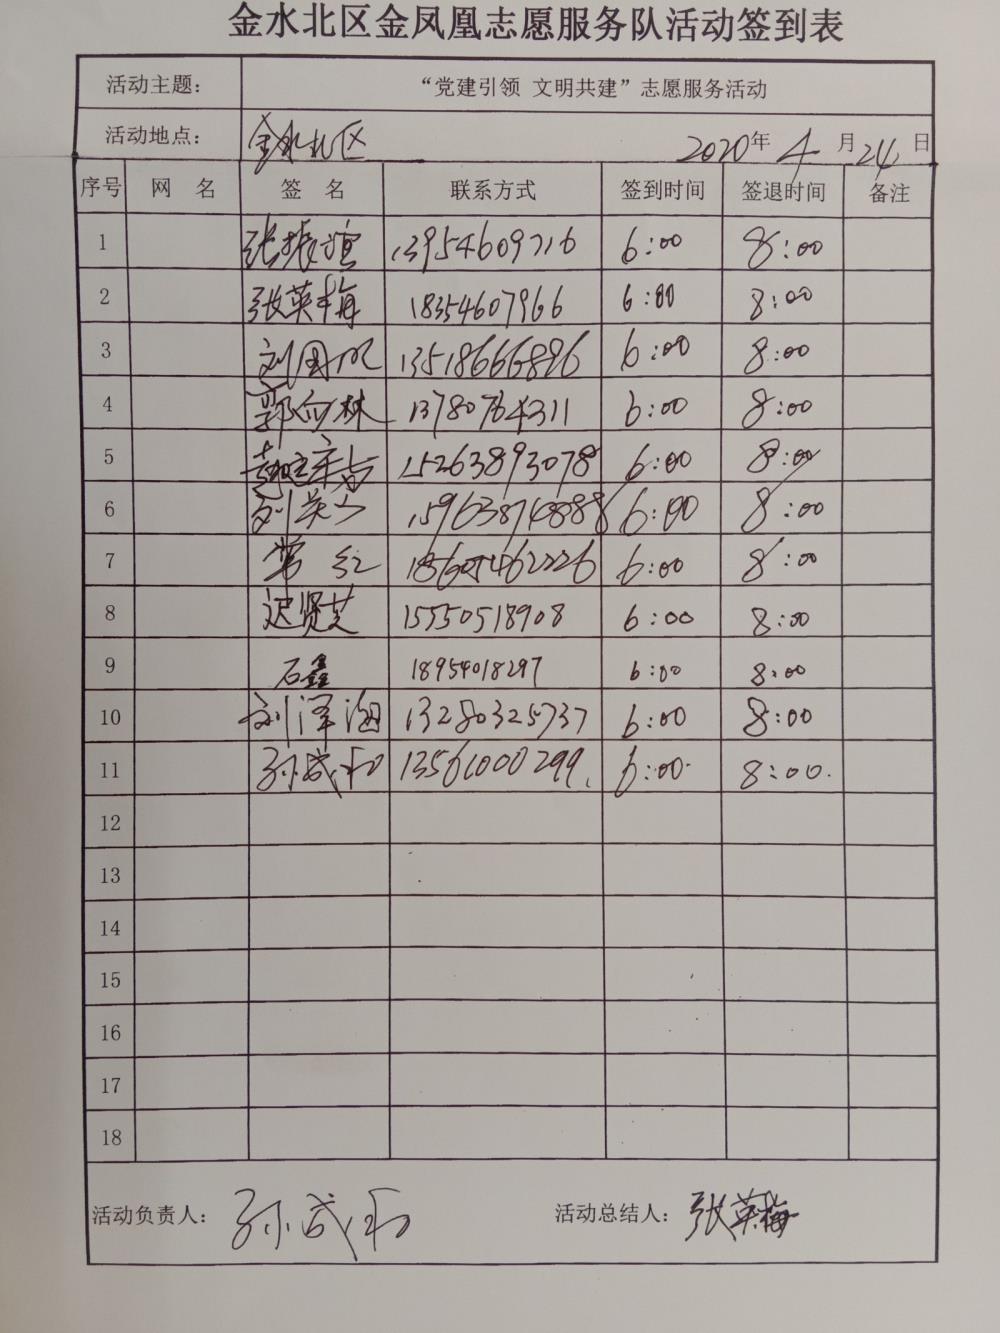 金水北区金凤凰志愿服务队活动签到表
活动主题： “党建引领 文明共建”志愿服务活动
活动地点： 金水北区 2020年 4 月 24 日
序号 网 名 签 名 联系方式 签到时间 签退时间 备注
1 张振 13954609716 6:00 8:00
2 张英梅 18354607966 6:00 8:00
3 刘国 13518666896 6:00 8:00
4 郭应林 13780764311 6:00 8:00
5 15263893078 6:00 8:00
6 刘 6:00 8:00
7 常红 18605462226 6:00 8:00
8 迟贤芝 15550518908 6:00 8:00
9 石鑫 18954018297 6:00 8:00
10 刘泽海 13280325737 6:00 8:00
11 孙成和 13561000299 6:00 8:00
12
13
14
15
16
17
18
活动负责人： 孙成和 活动总结人： 张英梅